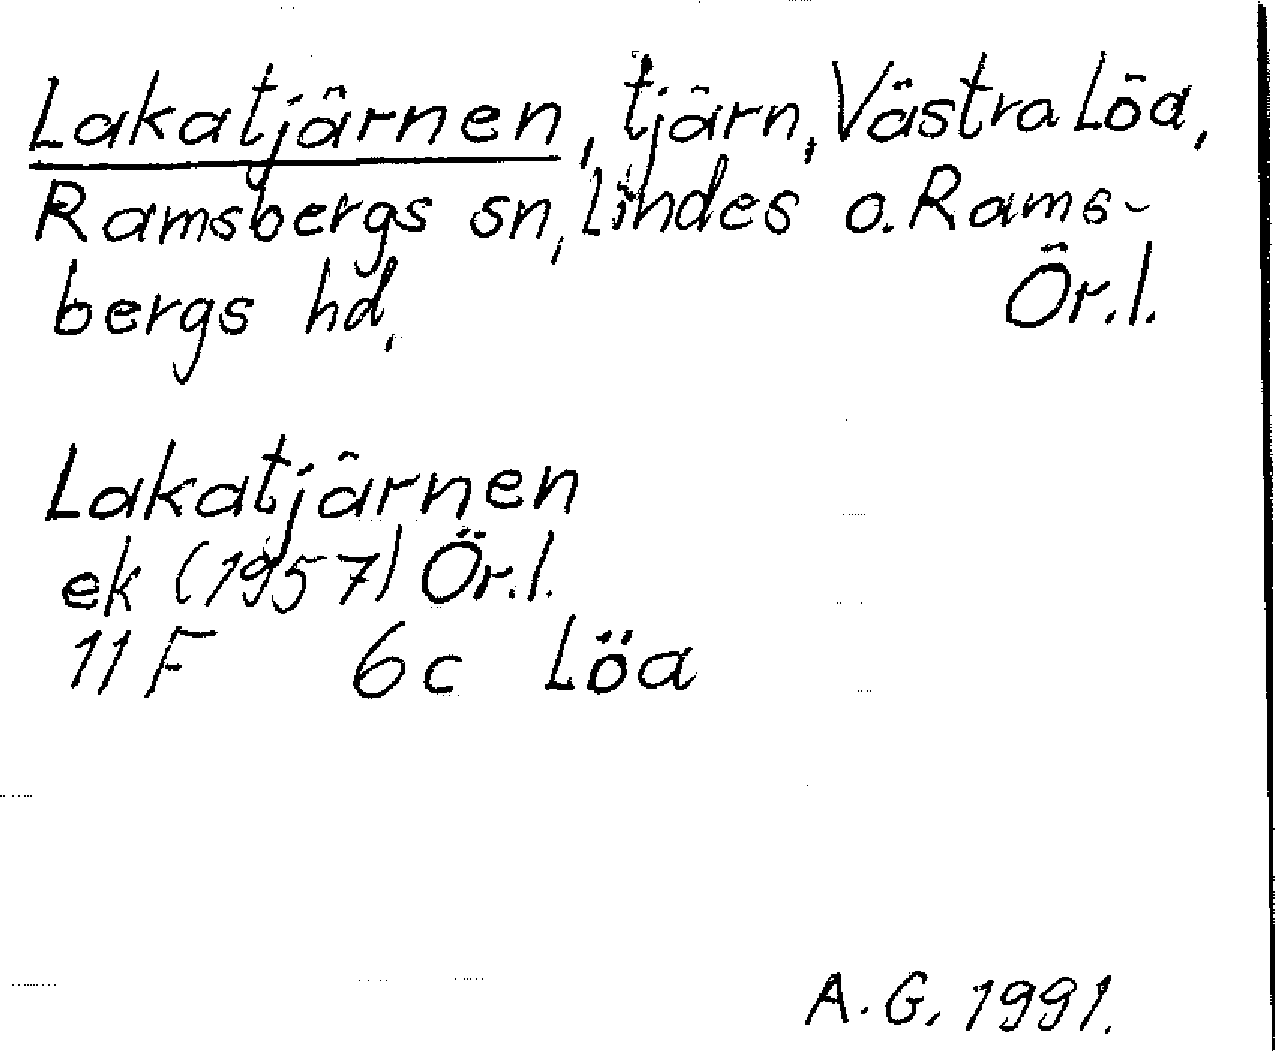 Lakatjärnen, tjärn, Västra Löa,
Ramsbergs sn, Lindes o. Rams-
bergs hd, Ör.l.
Lakatjärnen
ek (1957) Ör.l.
11 F 6c Löa
A.G. 1991.